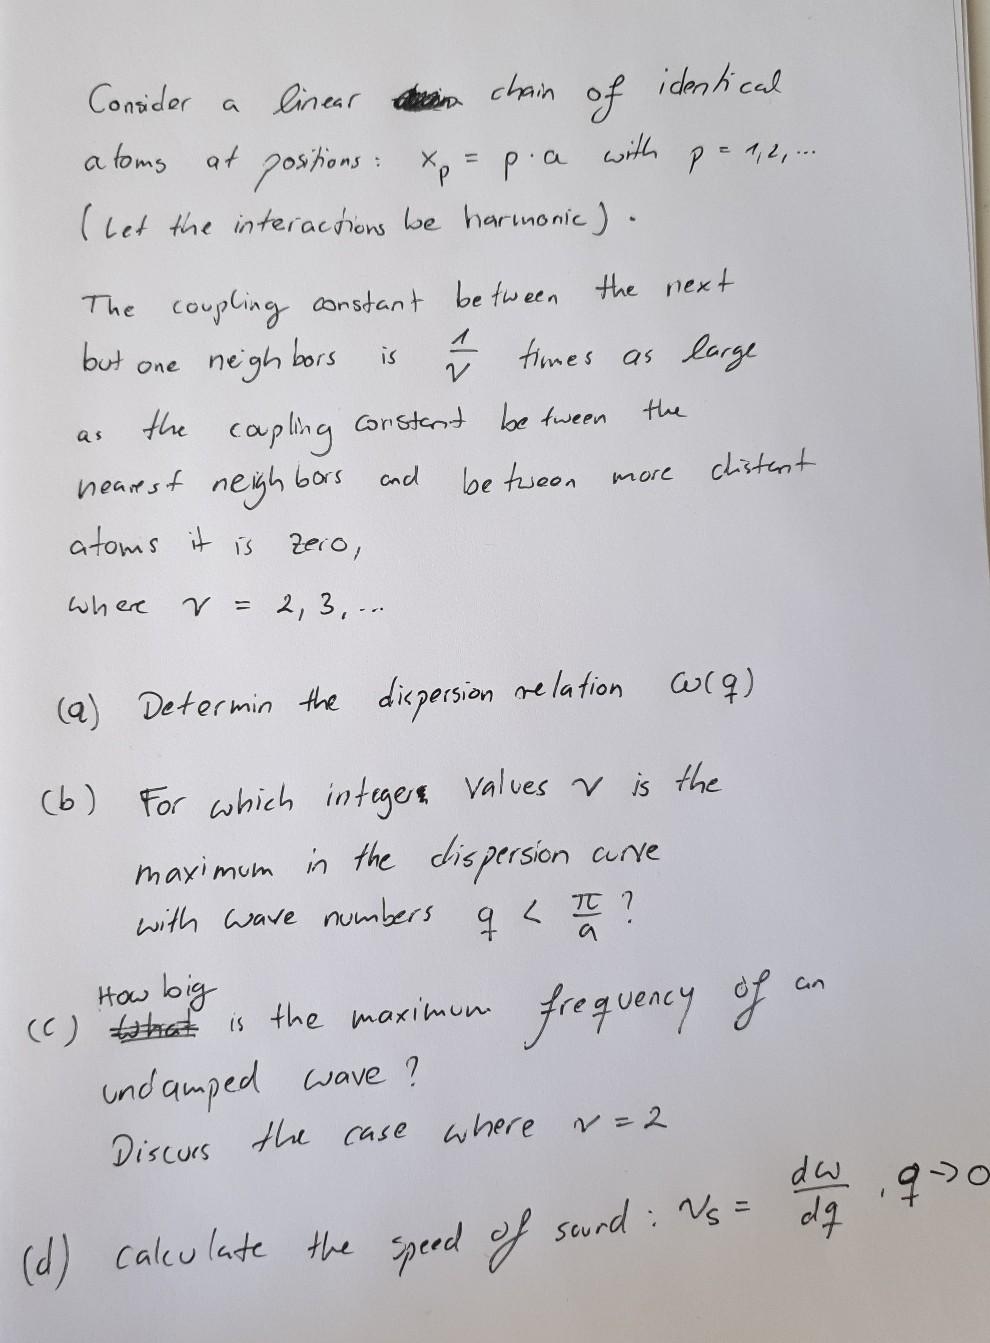 Consider a linear chain of identical
atoms at positions: x_p = p · a with p = 1,2, ...
(Let the interactions be harmonic).
The coupling constant between the next
but one neighbors is 1/ν times as large
as the coupling constant between the
nearest neighbors and between more distant
atoms it is zero,
where ν = 2, 3, ...
(a) Determin the dispersion relation ω(q)
(b) For which integers values ν is the
maximum in the dispersion curve
with wave numbers q < π/a ?
How big
(c) is the maximum frequency of an
undamped wave ?
Discuss the case where ν = 2
(d) calculate the speed of sound : v_s = dω/dq , q → 0